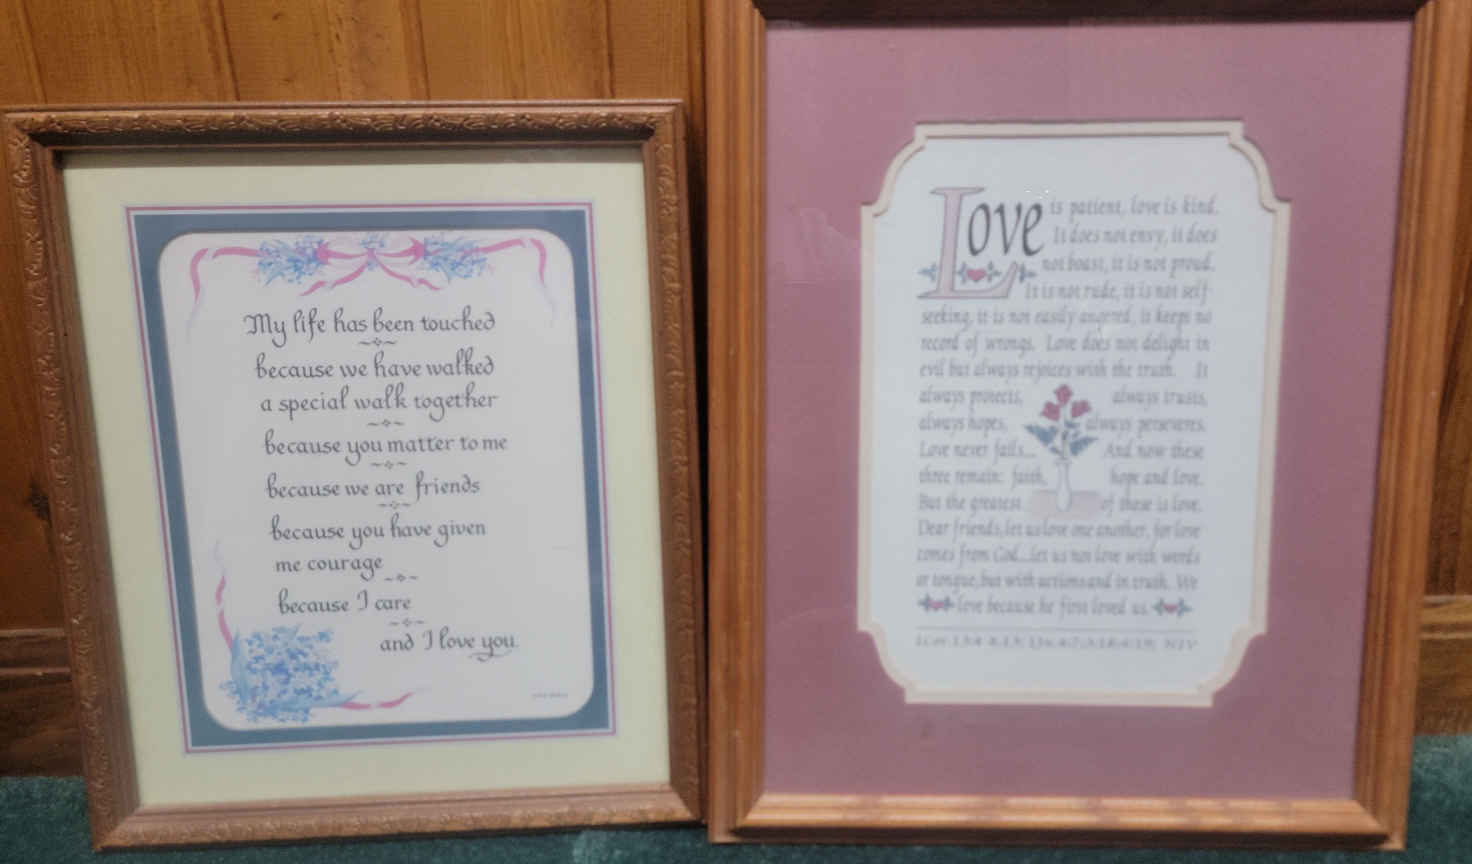 My life has been touched
because we have walked
a special walk together
because you matter to me
because we are friends
because you have given
me courage
because I care
and I love you.
Love is patient, love is kind.
It does not envy, it does
not boast, it is not proud.
It is not rude, it is not self-
seeking, it is not easily angered, it keeps no
record of wrongs. Love does not delight in
evil but always rejoices with the truth. It
always protects, always trusts,
always hopes, always perseveres.
Love never fails... And now these
three remain: faith, hope and love.
But the greatest of these is love.
Dear friends, let us love one another, for love
comes from God...let us not love with words
or tongue, but with actions and in truth. We
love because he first loved us.
NIV